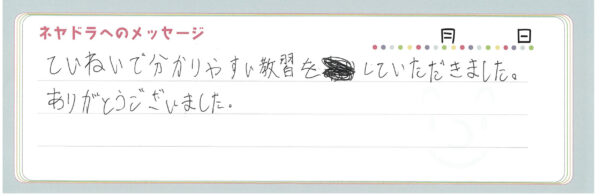 ネヤドラへのメッセージ
月 日
ていねいで分かりやすい教習をしていただきました。
ありがとうございました。